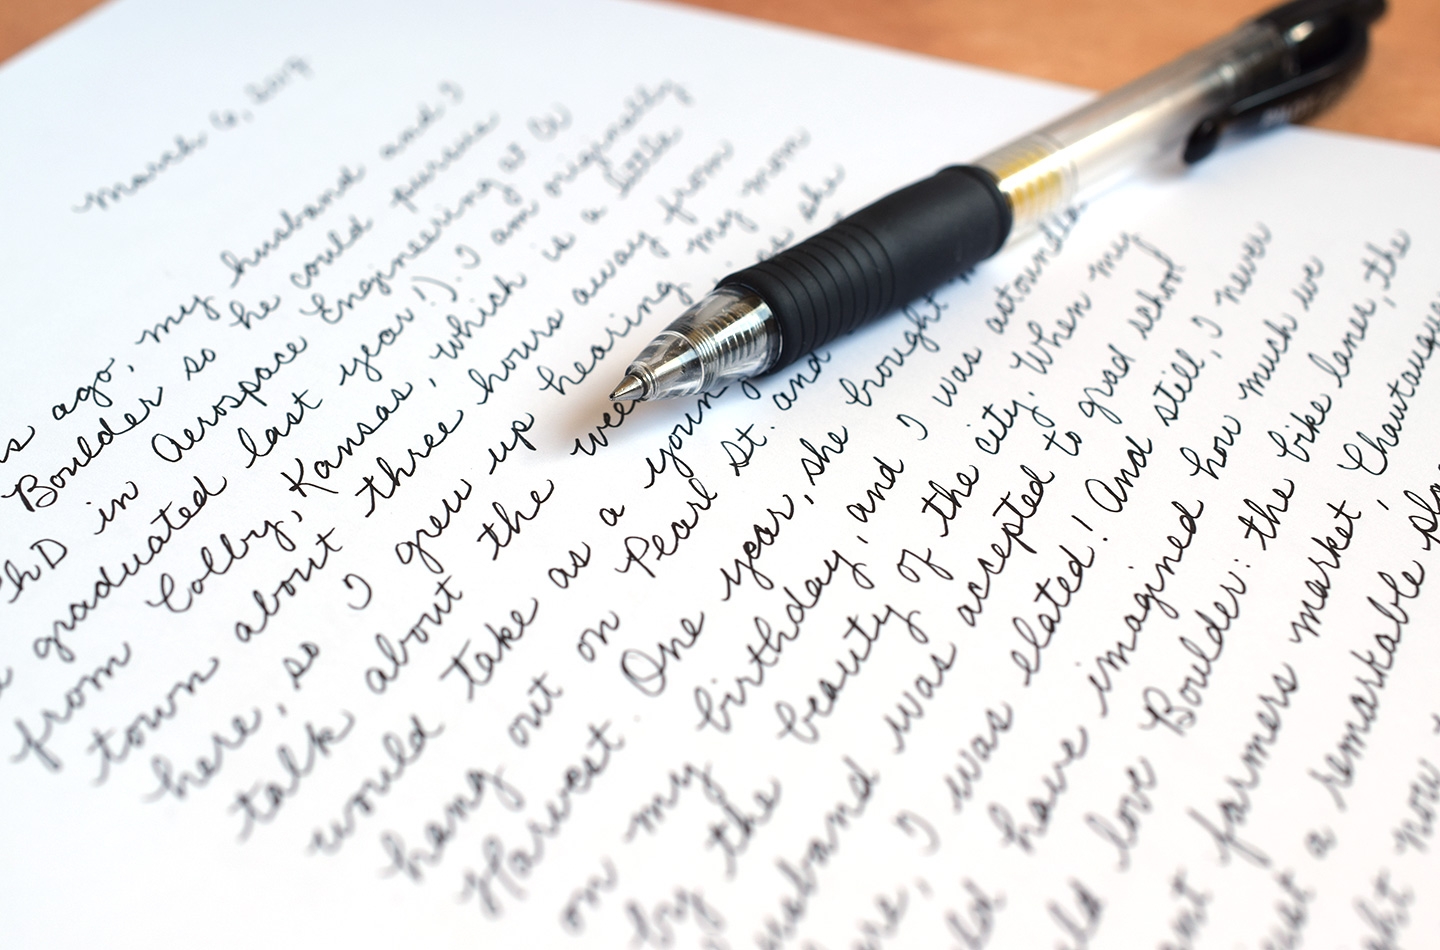 March 6, 2017
ago, my husband and I
Boulder so he could pursue
PhD in Aerospace Engineering at CU
graduated last year!). I am originally
from Colby, Kansas, which is a little
town about three hours away from
here, so I grew up hearing my mom
talk about the she
would take as a young
hang out on Pearl St. and
Harvest. One year, she brought
on my birthday, and I was astounded
by the beauty of the city. When my
husband was accepted to grad school
I was elated! And still, I never
have imagined how much we
love Boulder: the bike lanes, the
farmers market, Chautauqua
a remarkable
now